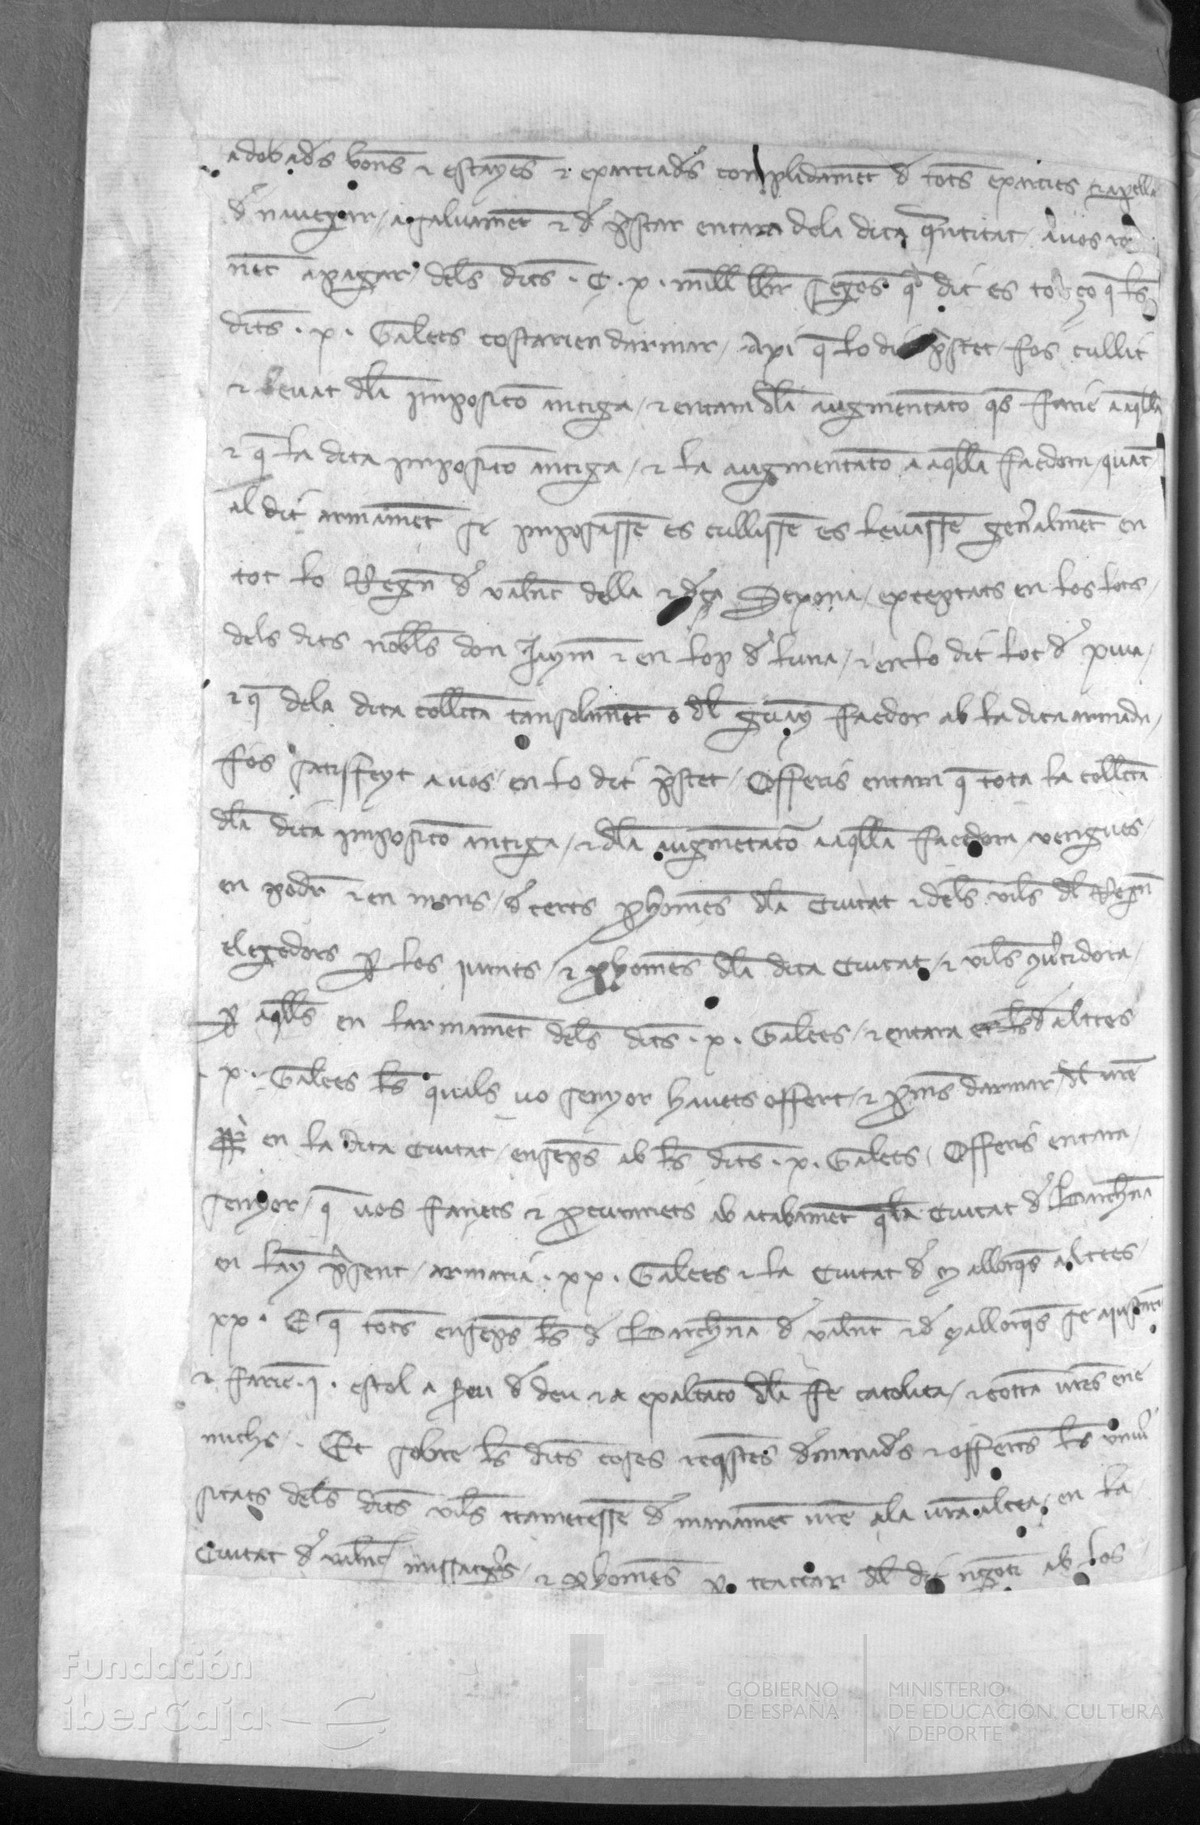 adobades bones & estayes & exarciades complidament de totes exarcies & aparella
de nauegar / a saluament & de prestar encara dela dita quantitat / a uos ro
nent a pagar dels dits .C.x. mill llbr segons que dit es tot ço que les
dites .x. Galees costarien darmar / Axi que lo dit prestec / fos cullit
& leuat dla imposicio antiga / & encara dla augmentacio ques farie a aqlla
& q la dita imposicio antiga / & la augmentacio a aqlla faedora / quant
al dit armament se imposassen es cullissen es leuassen generalment en
tot lo Regne de valenc della & deça Sexona / exceptats en los lochs
dels dits nobles don Jaym & en lop de luna / & en lo dit loc de xiua /
& q dela dita collecta tansolament o dl guany faedor ab la dita armada /
fos satisfeyt a uos / en lo dit prestec / Offeris encara q tota la collecta
dla dita imposicio antiga / & dla augmetacio a aqlla faedora vengues /
en poder & en mans / de certs prohomes dla Ciutat & dels vils dl Regne
elegedors per los jurats / & prohomes dla dita Ciutat / & viles conuertidora /
per aqlls en larmament dels dits .x. Galees / & encara en les altres
.x. Galees les quals uos senyor hauets offert / & promes darmar / dl vre
propi en la dita Ciutat / ensemps ab les dites .x. Galees / Offeris encara /
senyor / q uos fariets & procurariets ab acabament q la Ciutat de Barchna
en lany present / armaria .xx. Galees & la Ciutat de Mallorqs altres
xx. E q totes ensemps les de Barchna de valenc & de Mallorqs se ajustari
& farie .I. estol a seruey de deu & a exaltacio dla fe catolica / & contra vres ene
michs /. Et sobre les dites coses reqstes demanades & offertes les vniuer
sitats dels dits vils trametessen de manament vre ala vra altea / en la
Ciutat de valenc missatgers / & prohomes per tractar dl dit negoci ab los
Fundación
iberCaja
GOBIERNO
DE ESPAÑA
MINISTERIO
DE EDUCACIÓN, CULTURA
Y DEPORTE